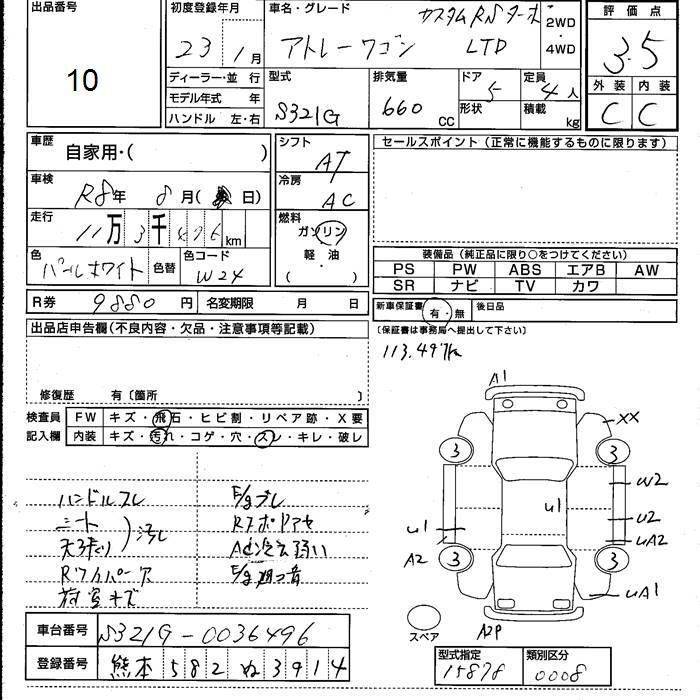 出品番号
10
初度登録年月
23年1月
車名・グレード
カスタムRSターボ
アトレーワゴン LTD
2WD
・
4WD
評価点
3.5
外装 内装
C C
ディーラー・並行
モデル年式 年
ハンドル 左・右
型式
S321G
排気量
660 CC
ドア
5
形状
定員
4人
積載
kg
車歴
自家用・( )
車検
R8年 8月( 日)
走行
11万3千496km
色
パールホワイト
色替
色コード
W24
シフト
AT
冷房
AC
燃料
ガソリン
軽・油
( )
セールスポイント(正常に機能するものに限ります)
装備品(純正品に限り○をつけてください)
PS PW ABS エアB AW
SR ナビ TV カワ
R券 9880円 名変期限 月 日
新車保証書 有・無 後日品
(保証書は事務局へ提出して下さい)
113.497km
出品店申告欄(不良内容・欠品・注意事項等記載)
修復歴 有〔箇所 〕
検査員 FW キズ・飛石・ヒビ割・リペア跡・X要
記入欄 内装 キズ・汚れ・コゲ・穴・スレ・キレ・破レ
ハンドルスレ
シート
天張り
)汚れ
Rワイパー穴
荷室キズ
E/gブレ
AC冷え弱い
A1
XX
3 3
W2
U1
U1
U2
UA2
A2
3 3
UA1
スペア
A2P
車台番号 S321G-0036496
登録番号 熊本582ぬ3914
型式指定 類別区分
15878 0008